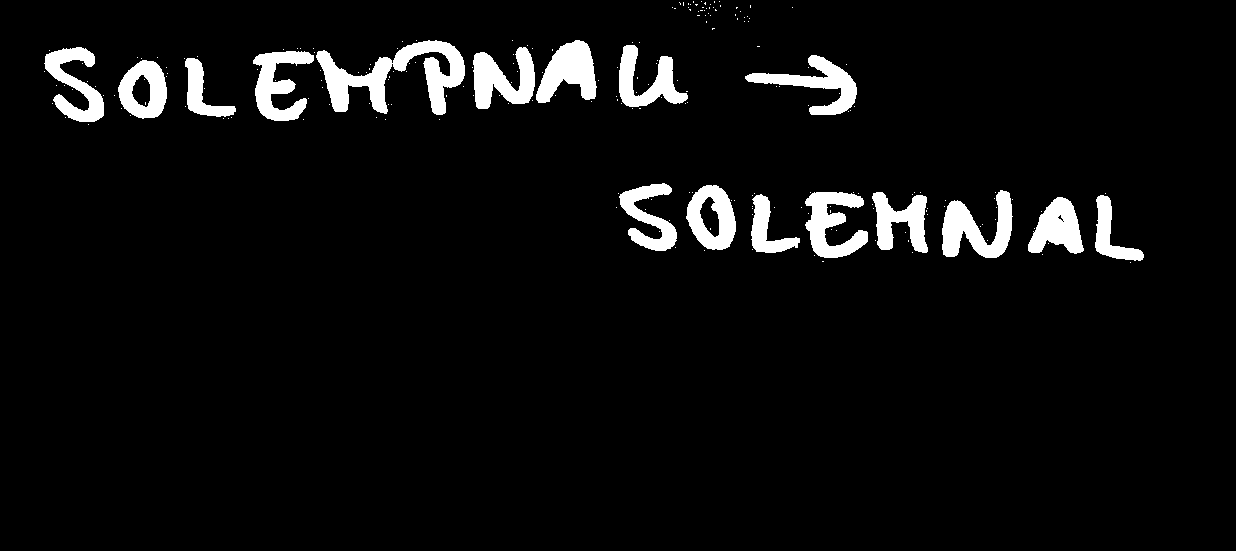 SOLEMPNAU →
SOLEMNAL